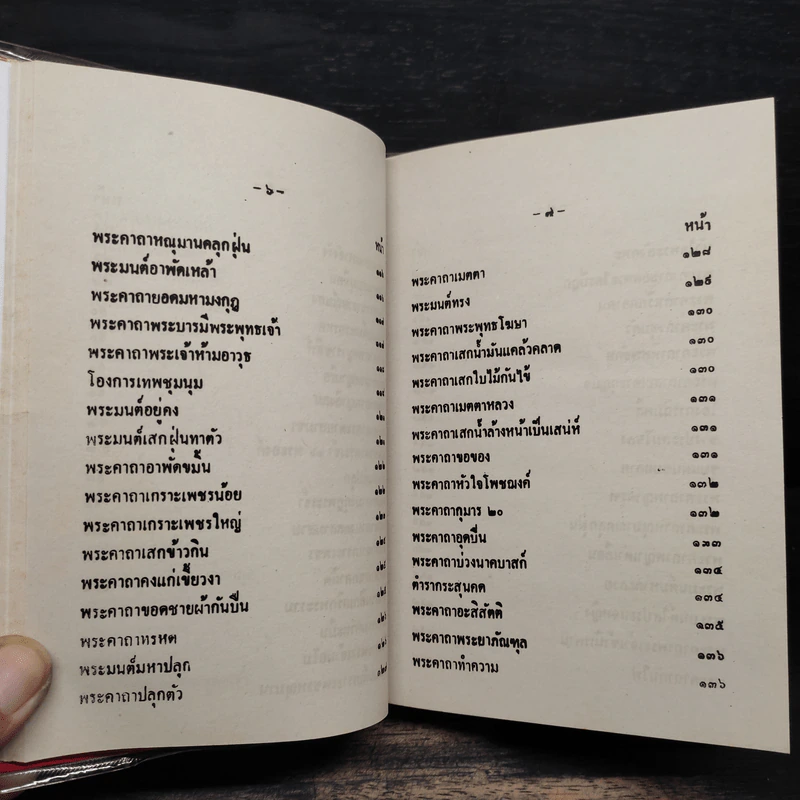 -๖-
หน้า
พระคาถาหณุมานคลุกฝุ่น
พระมนต์อาพัดเหล้า
พระคาถายอดมหามงกุฎ
พระคาถาพระบารมีพระพุทธเจ้า
พระคาถาพระเจ้าห้ามอาวุธ
โองการเทพชุมนุม
พระมนต์อยู่คง
พระมนต์เสกฝุ่นทาตัว
พระคาถาอาพัดขมิ้น
พระคาถาเกราะเพชรน้อย
พระคาถาเกราะเพชรใหญ่
พระคาถาเสกข้าวกิน
พระคาถาคงแก่เขี้ยวงา
พระคาถาขอดชายผ้ากันปืน
พระคาถาทรหด
พระมนต์มหาปลุก
พระคาถาปลุกตัว
-๗-
หน้า
พระคาถาเมตตา ๑๒๘
พระมนต์ทรง ๑๒๙
พระคาถาพระพุทธโฆษา ๑๓๐
พระคาถาเสกน้ำมันแคล้วคลาด ๑๓๐
พระคาถาเสกใบไม้กันไข้ ๑๓๐
พระคาถาเมตตาหลวง ๑๓๑
พระคาถาเสกน้ำล้างหน้าเป็นเสน่ห์ ๑๓๑
พระคาถาขอของ ๑๓๑
พระคาถาหัวใจโพชฌงค์ ๑๓๒
พระคาถากุมาร ๒๐ ๑๓๒
พระคาถาอุดปืน ๑๓๓
พระคาถาบ่วงนาคบาสก์ ๑๓๔
ตำรากระสุนคด ๑๓๔
พระคาถาอะสิสัตติ ๑๓๕
พระคาถาพระยาภัณฑุล ๑๓๖
พระคาถาทำความ ๑๓๖